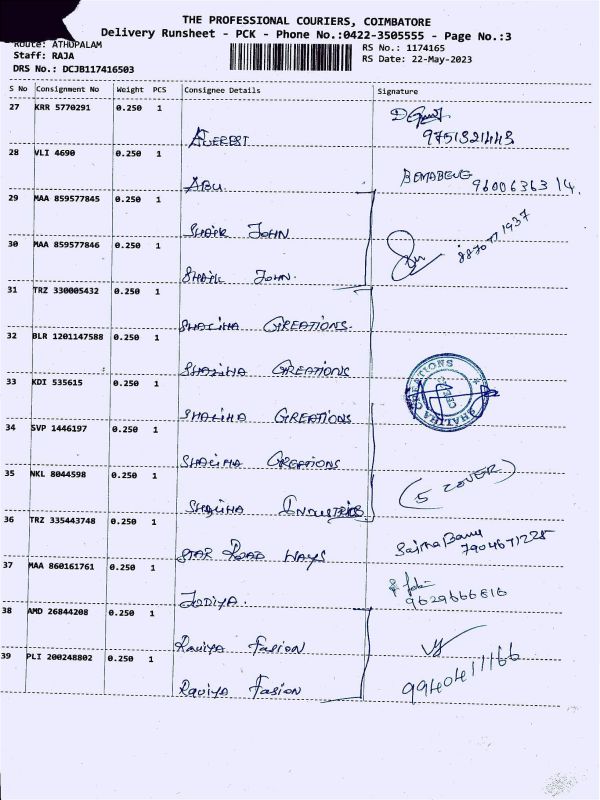 THE PROFESSIONAL COURIERS, COIMBATORE
Delivery Runsheet - PCK - Phone No.:0422-3505555 - Page No.:3
Route: ATHUPALAM
RS No.: 1174165
Staff: RAJA
RS Date: 22-May-2023
DRS No.: DCJB117416503
S No Consignment No Weight PCS Consignee Details Signature
27 KRR 5770291 0.250 1
AUEREST 9751321443
28 VLI 4690 0.250 1
ABU
29 MAA 859577845 0.250 1
SHAIK JOHN
30 MAA 859577846 0.250 1
SHAIK JOHN.
31 TRZ 330005432 0.250 1
SHALIHA CREATIONS.
32 BLR 1201147588 0.250 1
SHALIHA CREATIONS
33 KDI 535615 0.250 1
SHALIHA CREATIONS
CREATIONS
SHALIHA
34 SVP 1446197 0.250 1
SHALIHA CREATIONS
35 NKL 8044598 0.250 1
(5 COVER)
SHALIHA INDUSTRIES
36 TRZ 335443748 0.250 1
STAR ROAD WAYS 7904671225
37 MAA 860161761 0.250 1
JODIYA. 9629666816
38 AMD 26844208 0.250 1
Raviya Fasion
39 PLI 200248802 0.250 1
9940411166
Raviya Fasion